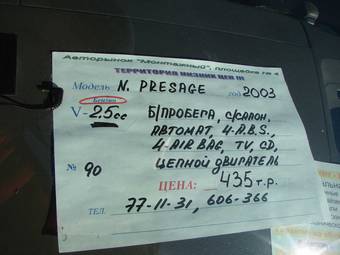 Авторынок "Монтажный", площадка № 4
ТЕРРИТОРИЯ НИЗКИХ ЦЕН !!!
Модель N. PRESAGE год 2003
Бензин
V- 2.5cc Б/ПРОБЕГА, С/САЛОН,
АВТОМАТ, 4-A.B.S.,
4 AIR BAG, TV, CD,
№ 90 ЦЕПНОЙ ДВИГАТЕЛЬ
ЦЕНА: 435 т.р.
ТЕЛ. 77-11-31, 606-366